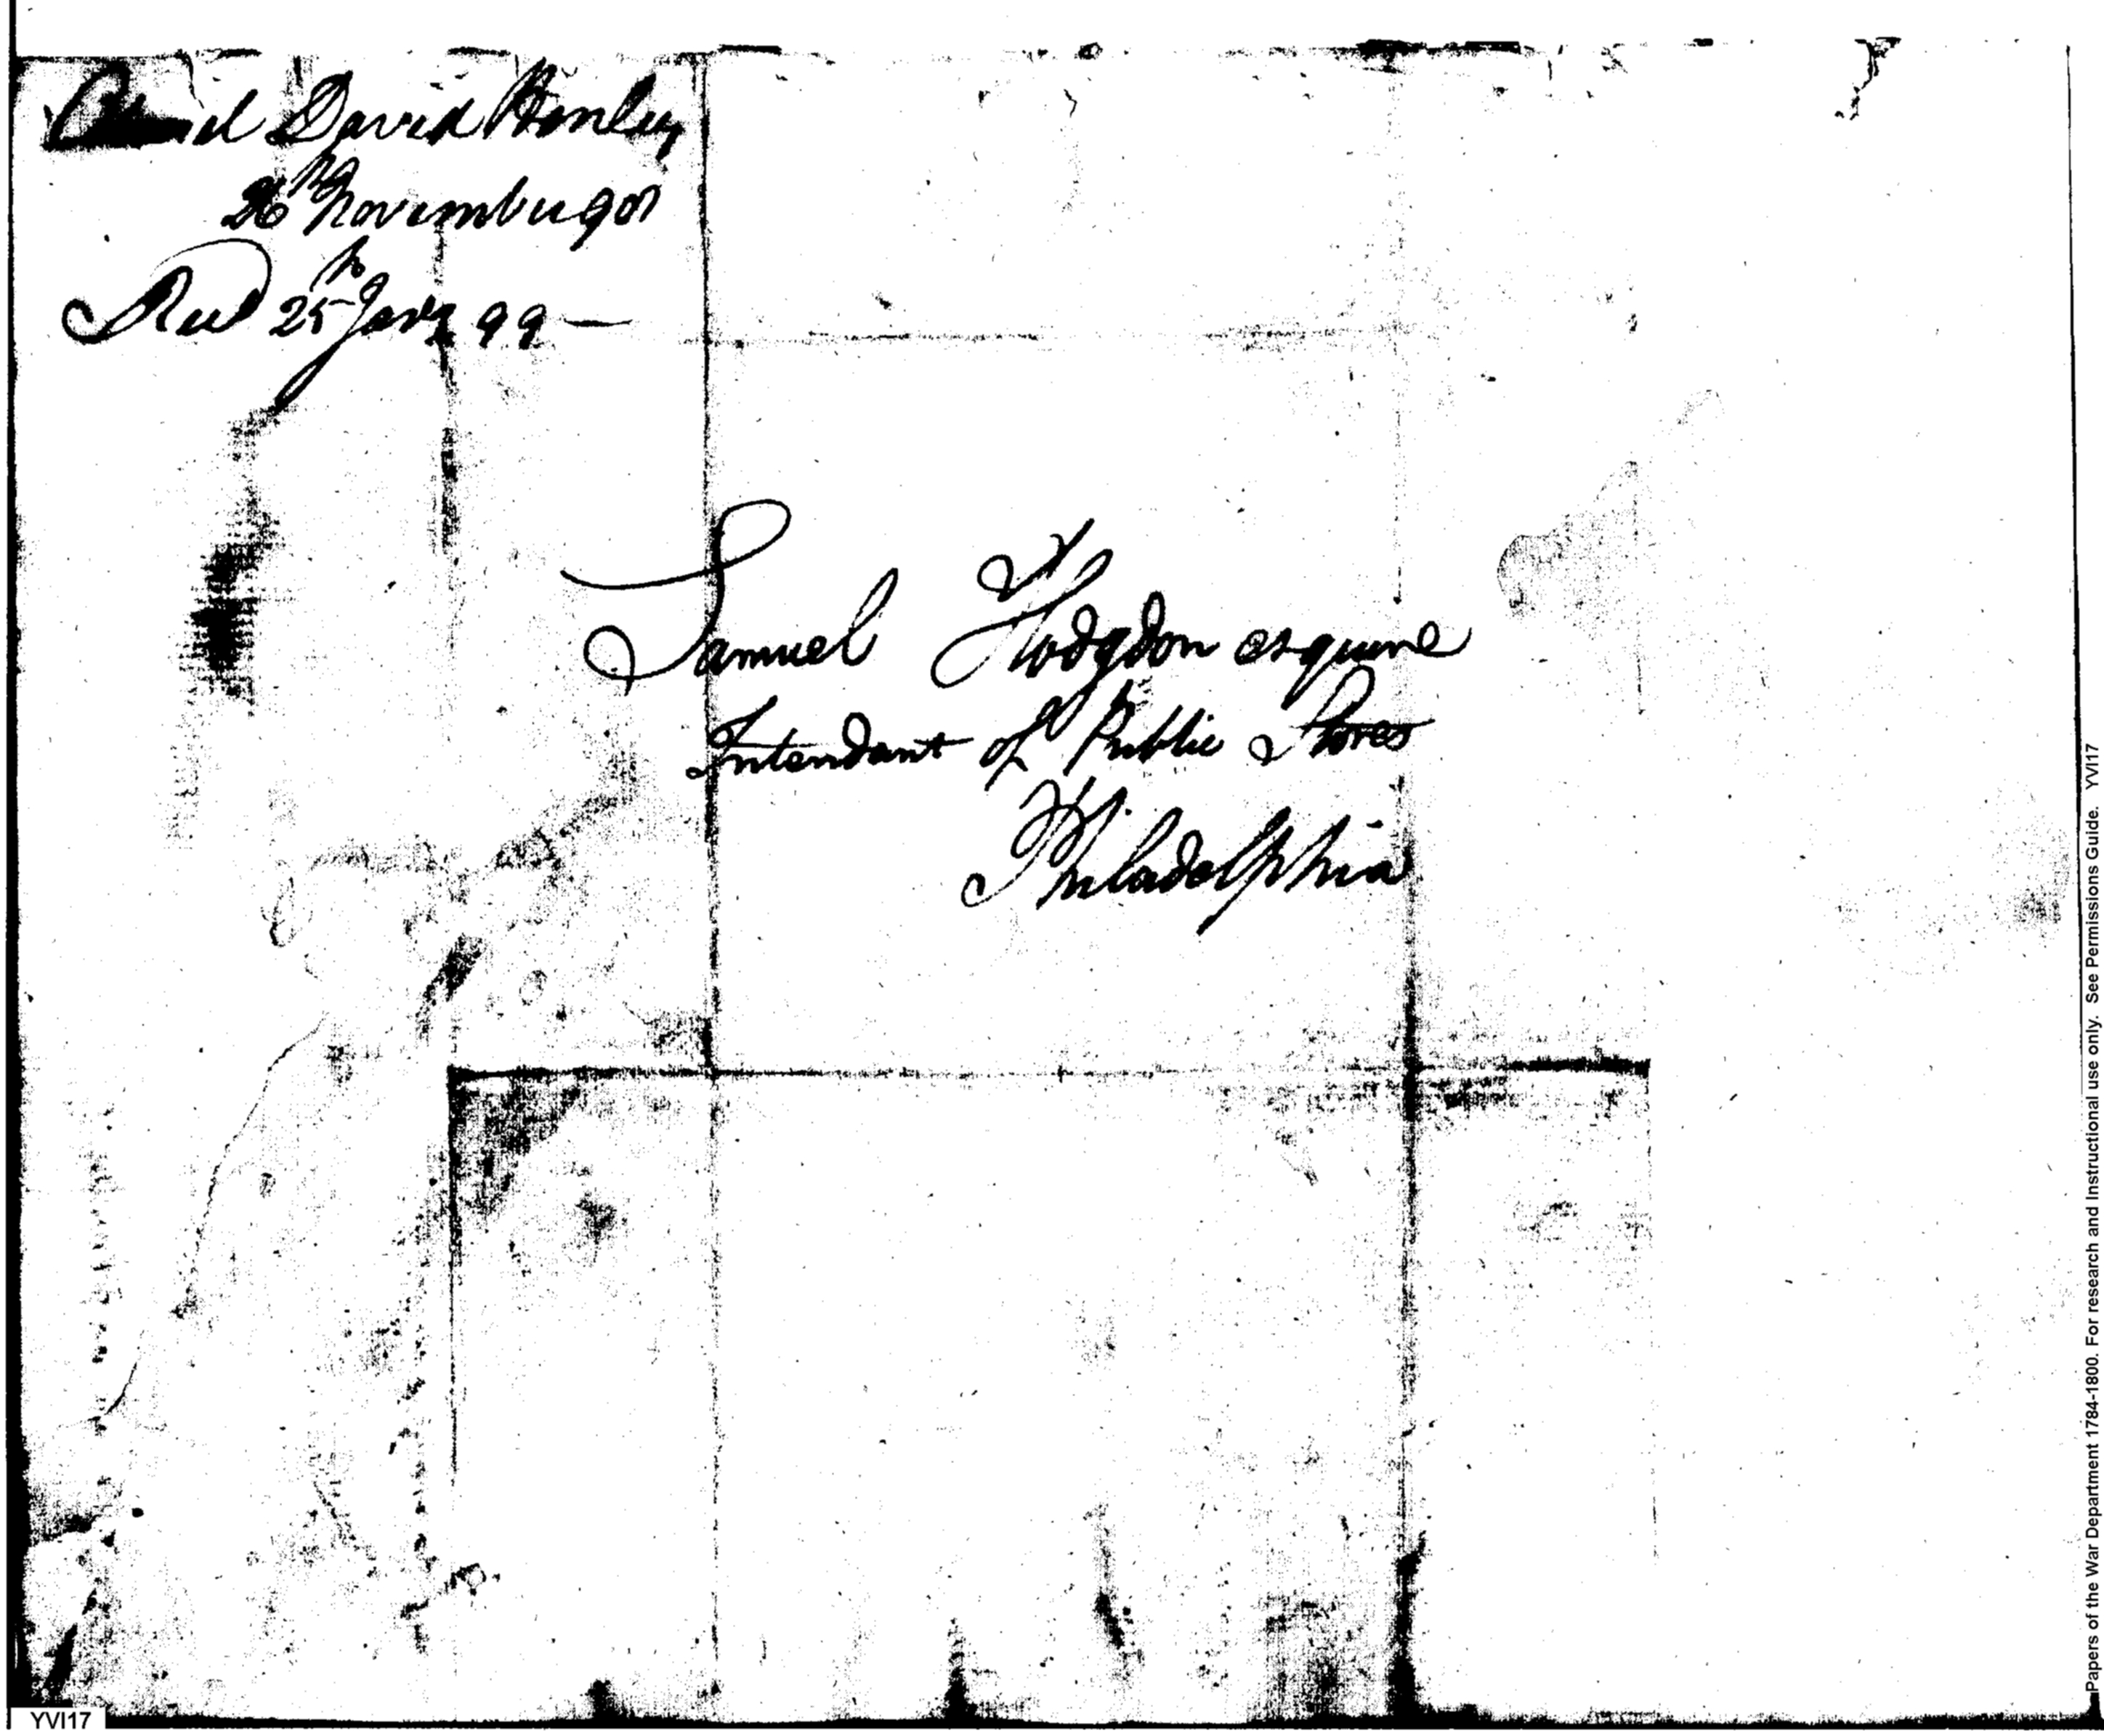 Colonel David Henley
26th November 98
Recd 25th Jany 99 —
Samuel Hodgdon esquire
Intendant of Public Stores
Philadelphia
Papers of the War Department 1784-1800. For research and Instructional use only. See Permissions Guide. YVI17
YVI17